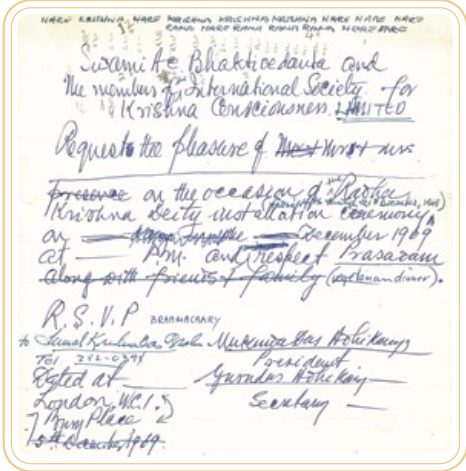 HARE KRISHNA, HARE KRISHNA KRISHNA KRISHNA HARE HARE HARE
RAMA HARE RAMA RAMA RAMA HARE HARE
Swami A.C. Bhaktivedanta and
the members of International Society for
Krishna Consciousness. LIMITED
Request the pleasure of Mr & Mrs
presence on the occasion of the Radha
Krishna Deity installation ceremony
on December 1969
at P.M. and respect Prasadam
along with friends & family (vegetarian dinner).
R.S.V.P BRAHMACHARY
to Mukunda Das Adhikary
Tel. 242-0394 President
Dated at Gurudas Adhikary
London, W.C.1. Secretary
Bury Place
5th December, 1969.